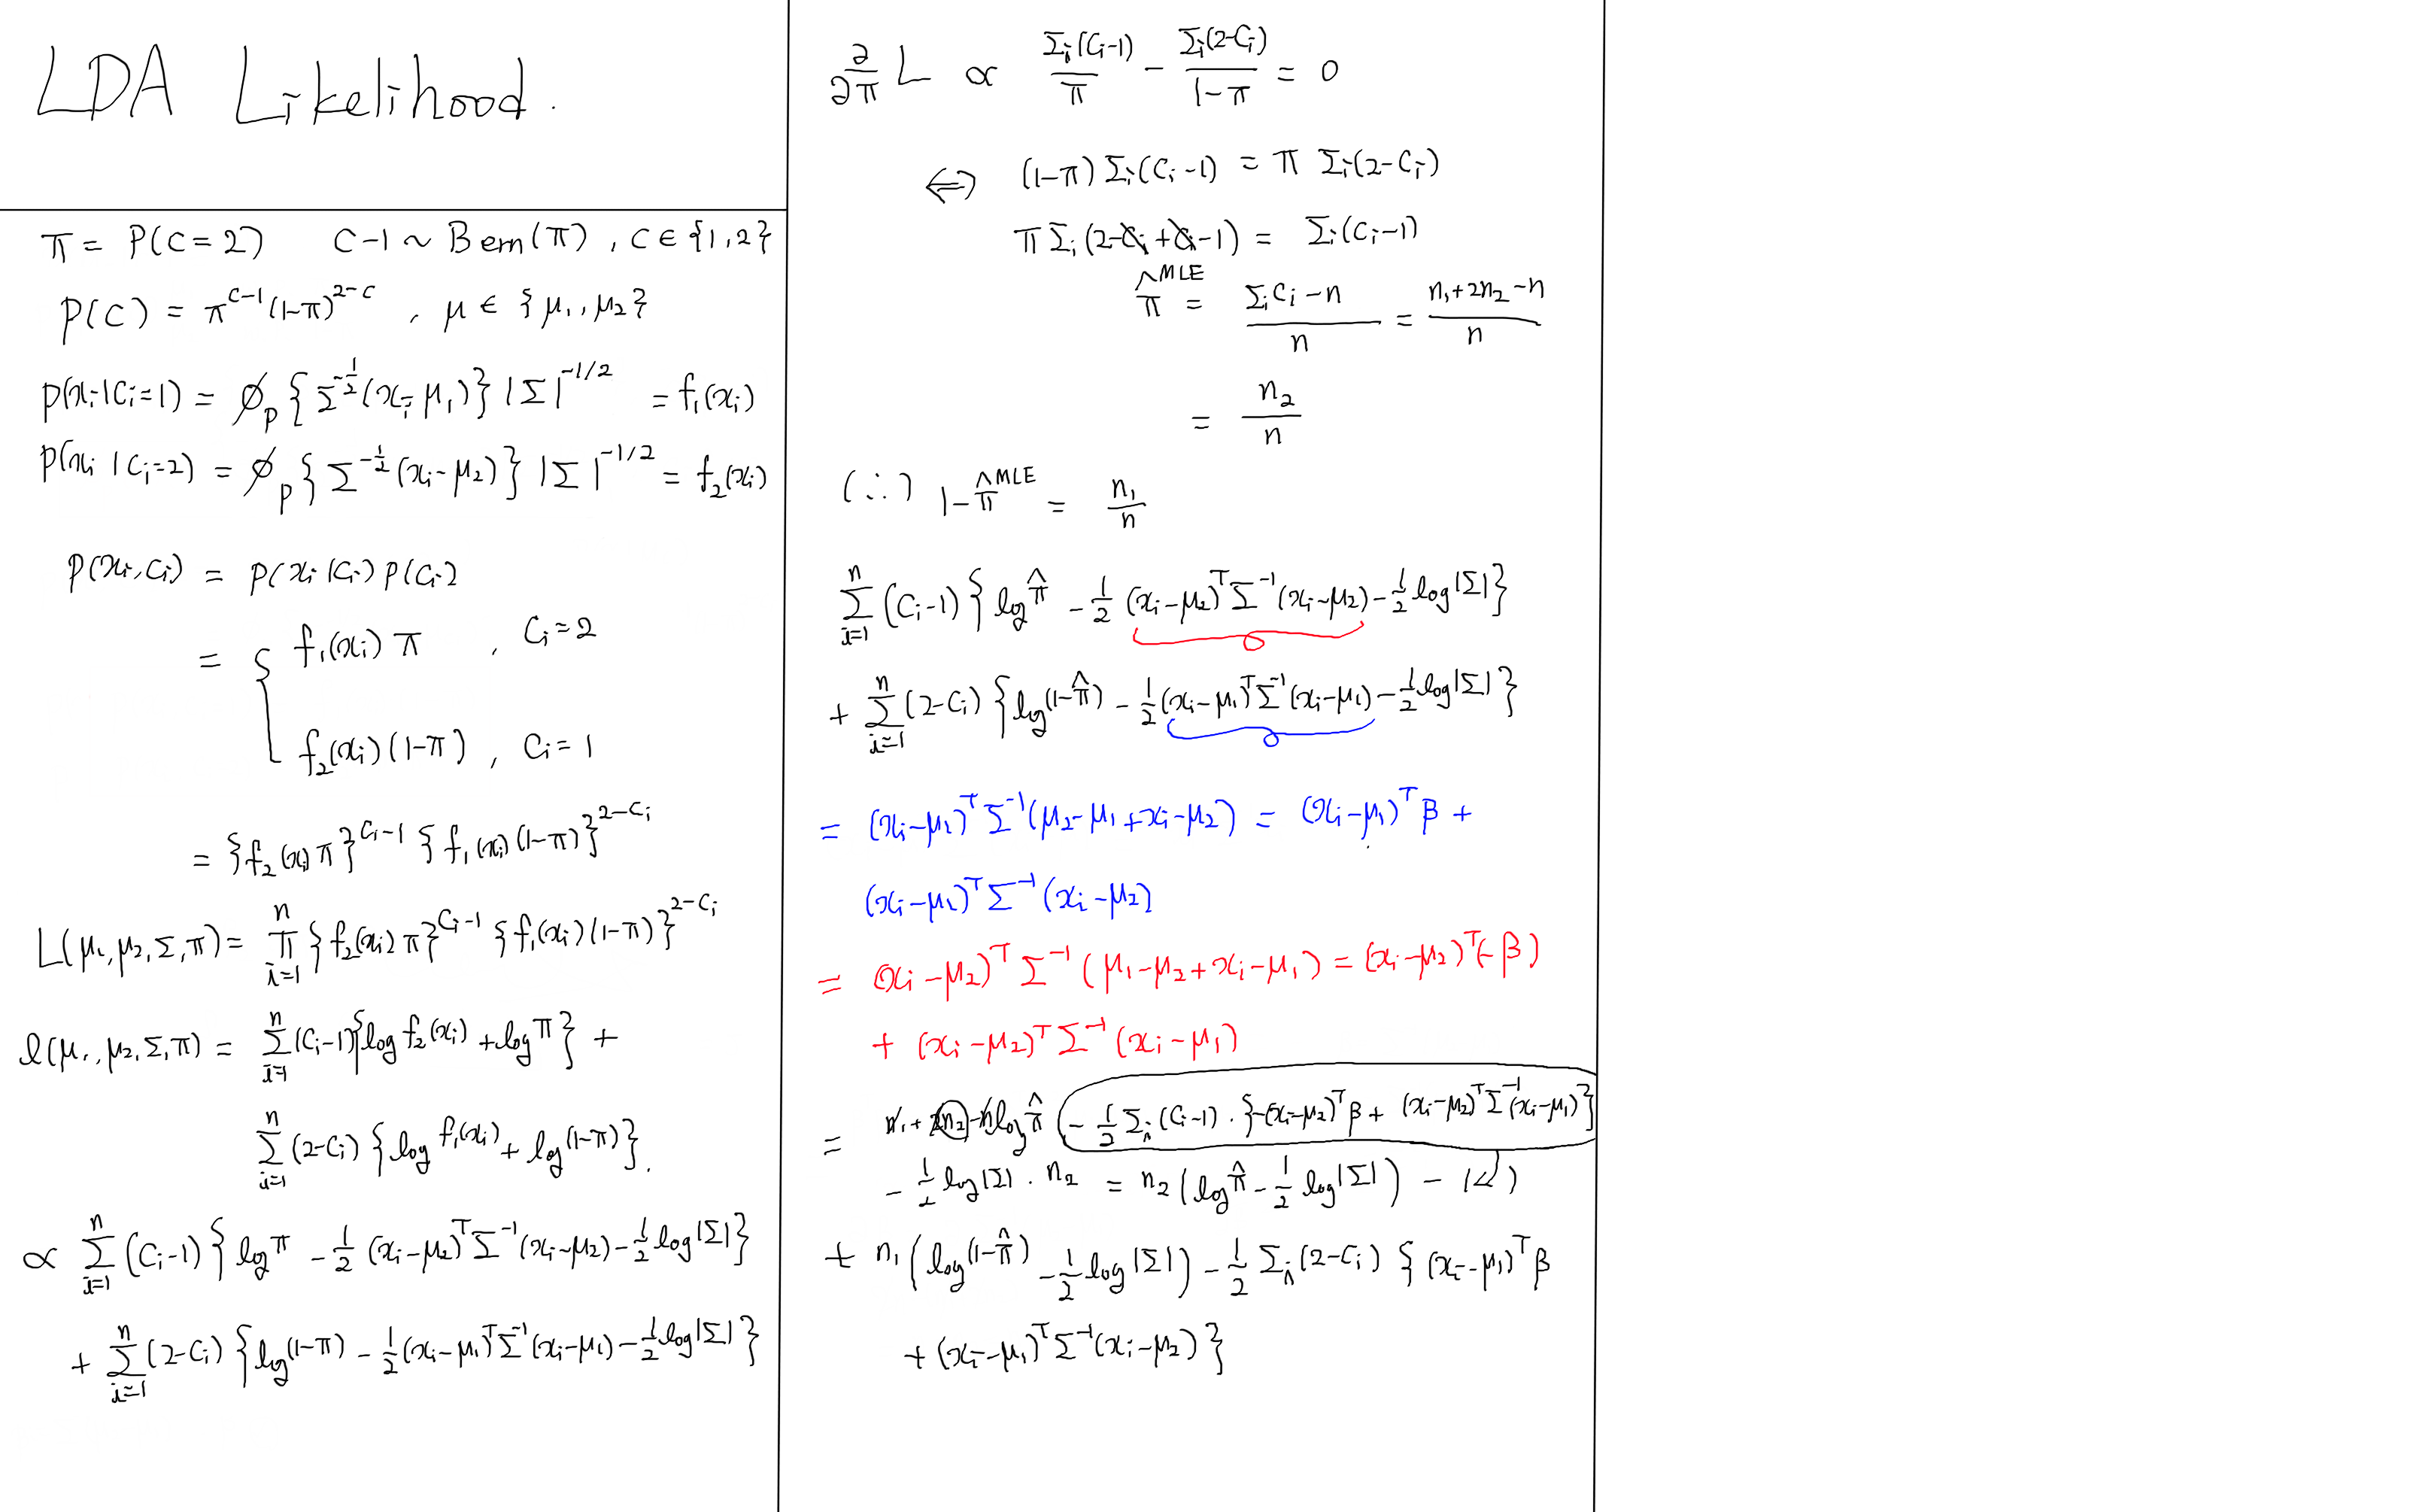 LDA Likelihood.
π = P(C=2)   C-1 ~ Bern(π), C ∈ {1,2}
P(C) = π^{C-1}(1-π)^{2-C} , μ ∈ {μ₁, μ₂}
p(xᵢ|Cᵢ=1) = φ_p{Σ^{-1/2}(xᵢ-μ₁)}|Σ|^{-1/2} = f₁(xᵢ)
p(xᵢ|Cᵢ=2) = φ_p{Σ^{-1/2}(xᵢ-μ₂)}|Σ|^{-1/2} = f₂(xᵢ)
P(xᵢ, Cᵢ) = P(xᵢ|Cᵢ) P(Cᵢ)
= { f₁(xᵢ) π , Cᵢ=2
f₂(xᵢ)(1-π) , Cᵢ=1
= {f₂(xᵢ)π}^{Cᵢ-1} {f₁(xᵢ)(1-π)}^{2-Cᵢ}
L(μ₁, μ₂, Σ, π) = ∏_{i=1}^{n} {f₂(xᵢ)π}^{Cᵢ-1} {f₁(xᵢ)(1-π)}^{2-Cᵢ}
l(μ₁, μ₂, Σ, π) = Σ_{i=1}^{n} (Cᵢ-1){log f₂(xᵢ) + log π} +
Σ_{i=1}^{n} (2-Cᵢ){log f₁(xᵢ) + log(1-π)}.
∝ Σ_{i=1}^{n} (Cᵢ-1){log π - 1/2 (xᵢ-μ₂)ᵀΣ⁻¹(xᵢ-μ₂) - 1/2 log|Σ|}
+ Σ_{i=1}^{n} (2-Cᵢ){log(1-π) - 1/2 (xᵢ-μ₁)ᵀΣ⁻¹(xᵢ-μ₁) - 1/2 log|Σ|}
∂/∂π L ∝ Σᵢ(Cᵢ-1)/π - Σᵢ(2-Cᵢ)/(1-π) = 0
⟺ (1-π)Σᵢ(Cᵢ-1) = π Σᵢ(2-Cᵢ)
π Σᵢ(2-Cᵢ+Cᵢ-1) = Σᵢ(Cᵢ-1)
π̂^{MLE} = (ΣᵢCᵢ - n)/n = (n₁+2n₂-n)/n
= n₂/n
(∴) 1-π̂^{MLE} = n₁/n
Σ_{i=1}^{n} (Cᵢ-1){log π̂ - 1/2 (xᵢ-μ₂)ᵀΣ⁻¹(xᵢ-μ₂) - 1/2 log|Σ|}
+ Σ_{i=1}^{n} (2-Cᵢ){log(1-π̂) - 1/2 (xᵢ-μ₁)ᵀΣ⁻¹(xᵢ-μ₁) - 1/2 log|Σ|}
= (xᵢ-μ₁)ᵀΣ⁻¹(μ₂-μ₁+xᵢ-μ₂) = (xᵢ-μ₁)ᵀβ +
(xᵢ-μ₁)ᵀΣ⁻¹(xᵢ-μ₂)
= (xᵢ-μ₂)ᵀΣ⁻¹(μ₁-μ₂+xᵢ-μ₁) = (xᵢ-μ₂)ᵀ(-β)
+ (xᵢ-μ₂)ᵀΣ⁻¹(xᵢ-μ₁)
= n₁+2n₂-n log π̂ - 1/2 Σᵢ(Cᵢ-1)·{-(xᵢ-μ₂)ᵀβ + (xᵢ-μ₂)ᵀΣ⁻¹(xᵢ-μ₁)}
- 1/2 log|Σ|·n₂ = n₂(log π̂ - 1/2 log|Σ|) - ( )
+ n₁(log(1-π̂) - 1/2 log|Σ|) - 1/2 Σᵢ(2-Cᵢ){(xᵢ-μ₁)ᵀβ
+ (xᵢ-μ₁)ᵀΣ⁻¹(xᵢ-μ₂)}